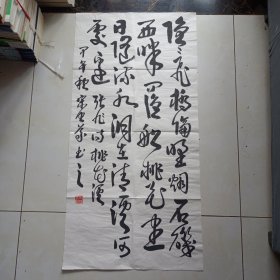 隐〻飞桥隔野烟石矶
西畔问渔船桃花尽
日随流水洞在清溪何
处边 张旭诗桃花溪
甲午秋宋书之